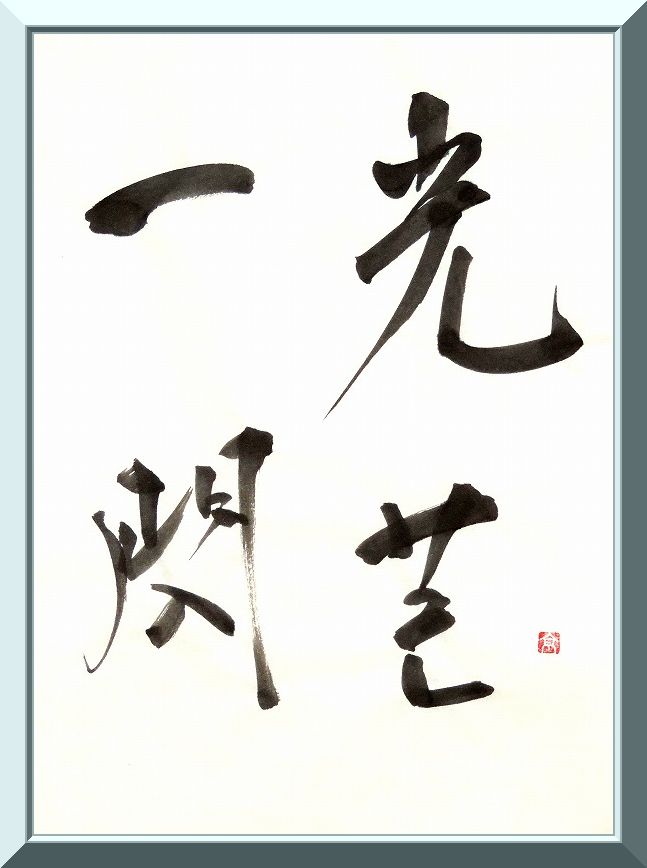 光芒
一閃